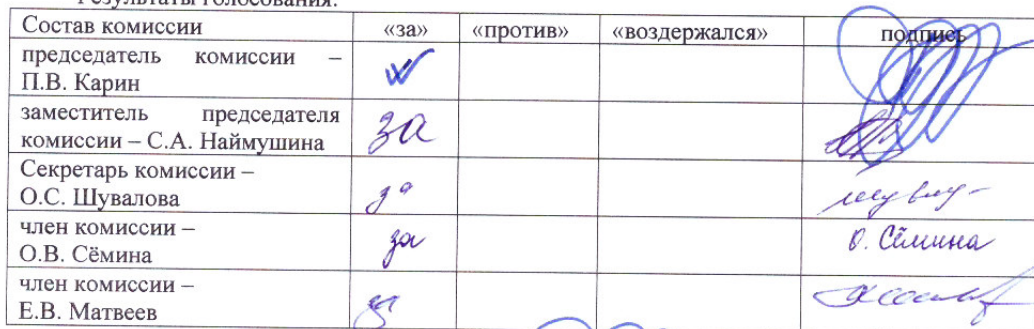 Результаты голосования:
Состав комиссии «за» «против» «воздержался» подпись
председатель комиссии –
П.В. Карин
заместитель председателя
комиссии – С.А. Наймушина за
Секретарь комиссии –
О.С. Шувалова за
член комиссии –
О.В. Сёмина за О. Сёмина
член комиссии –
Е.В. Матвеев за